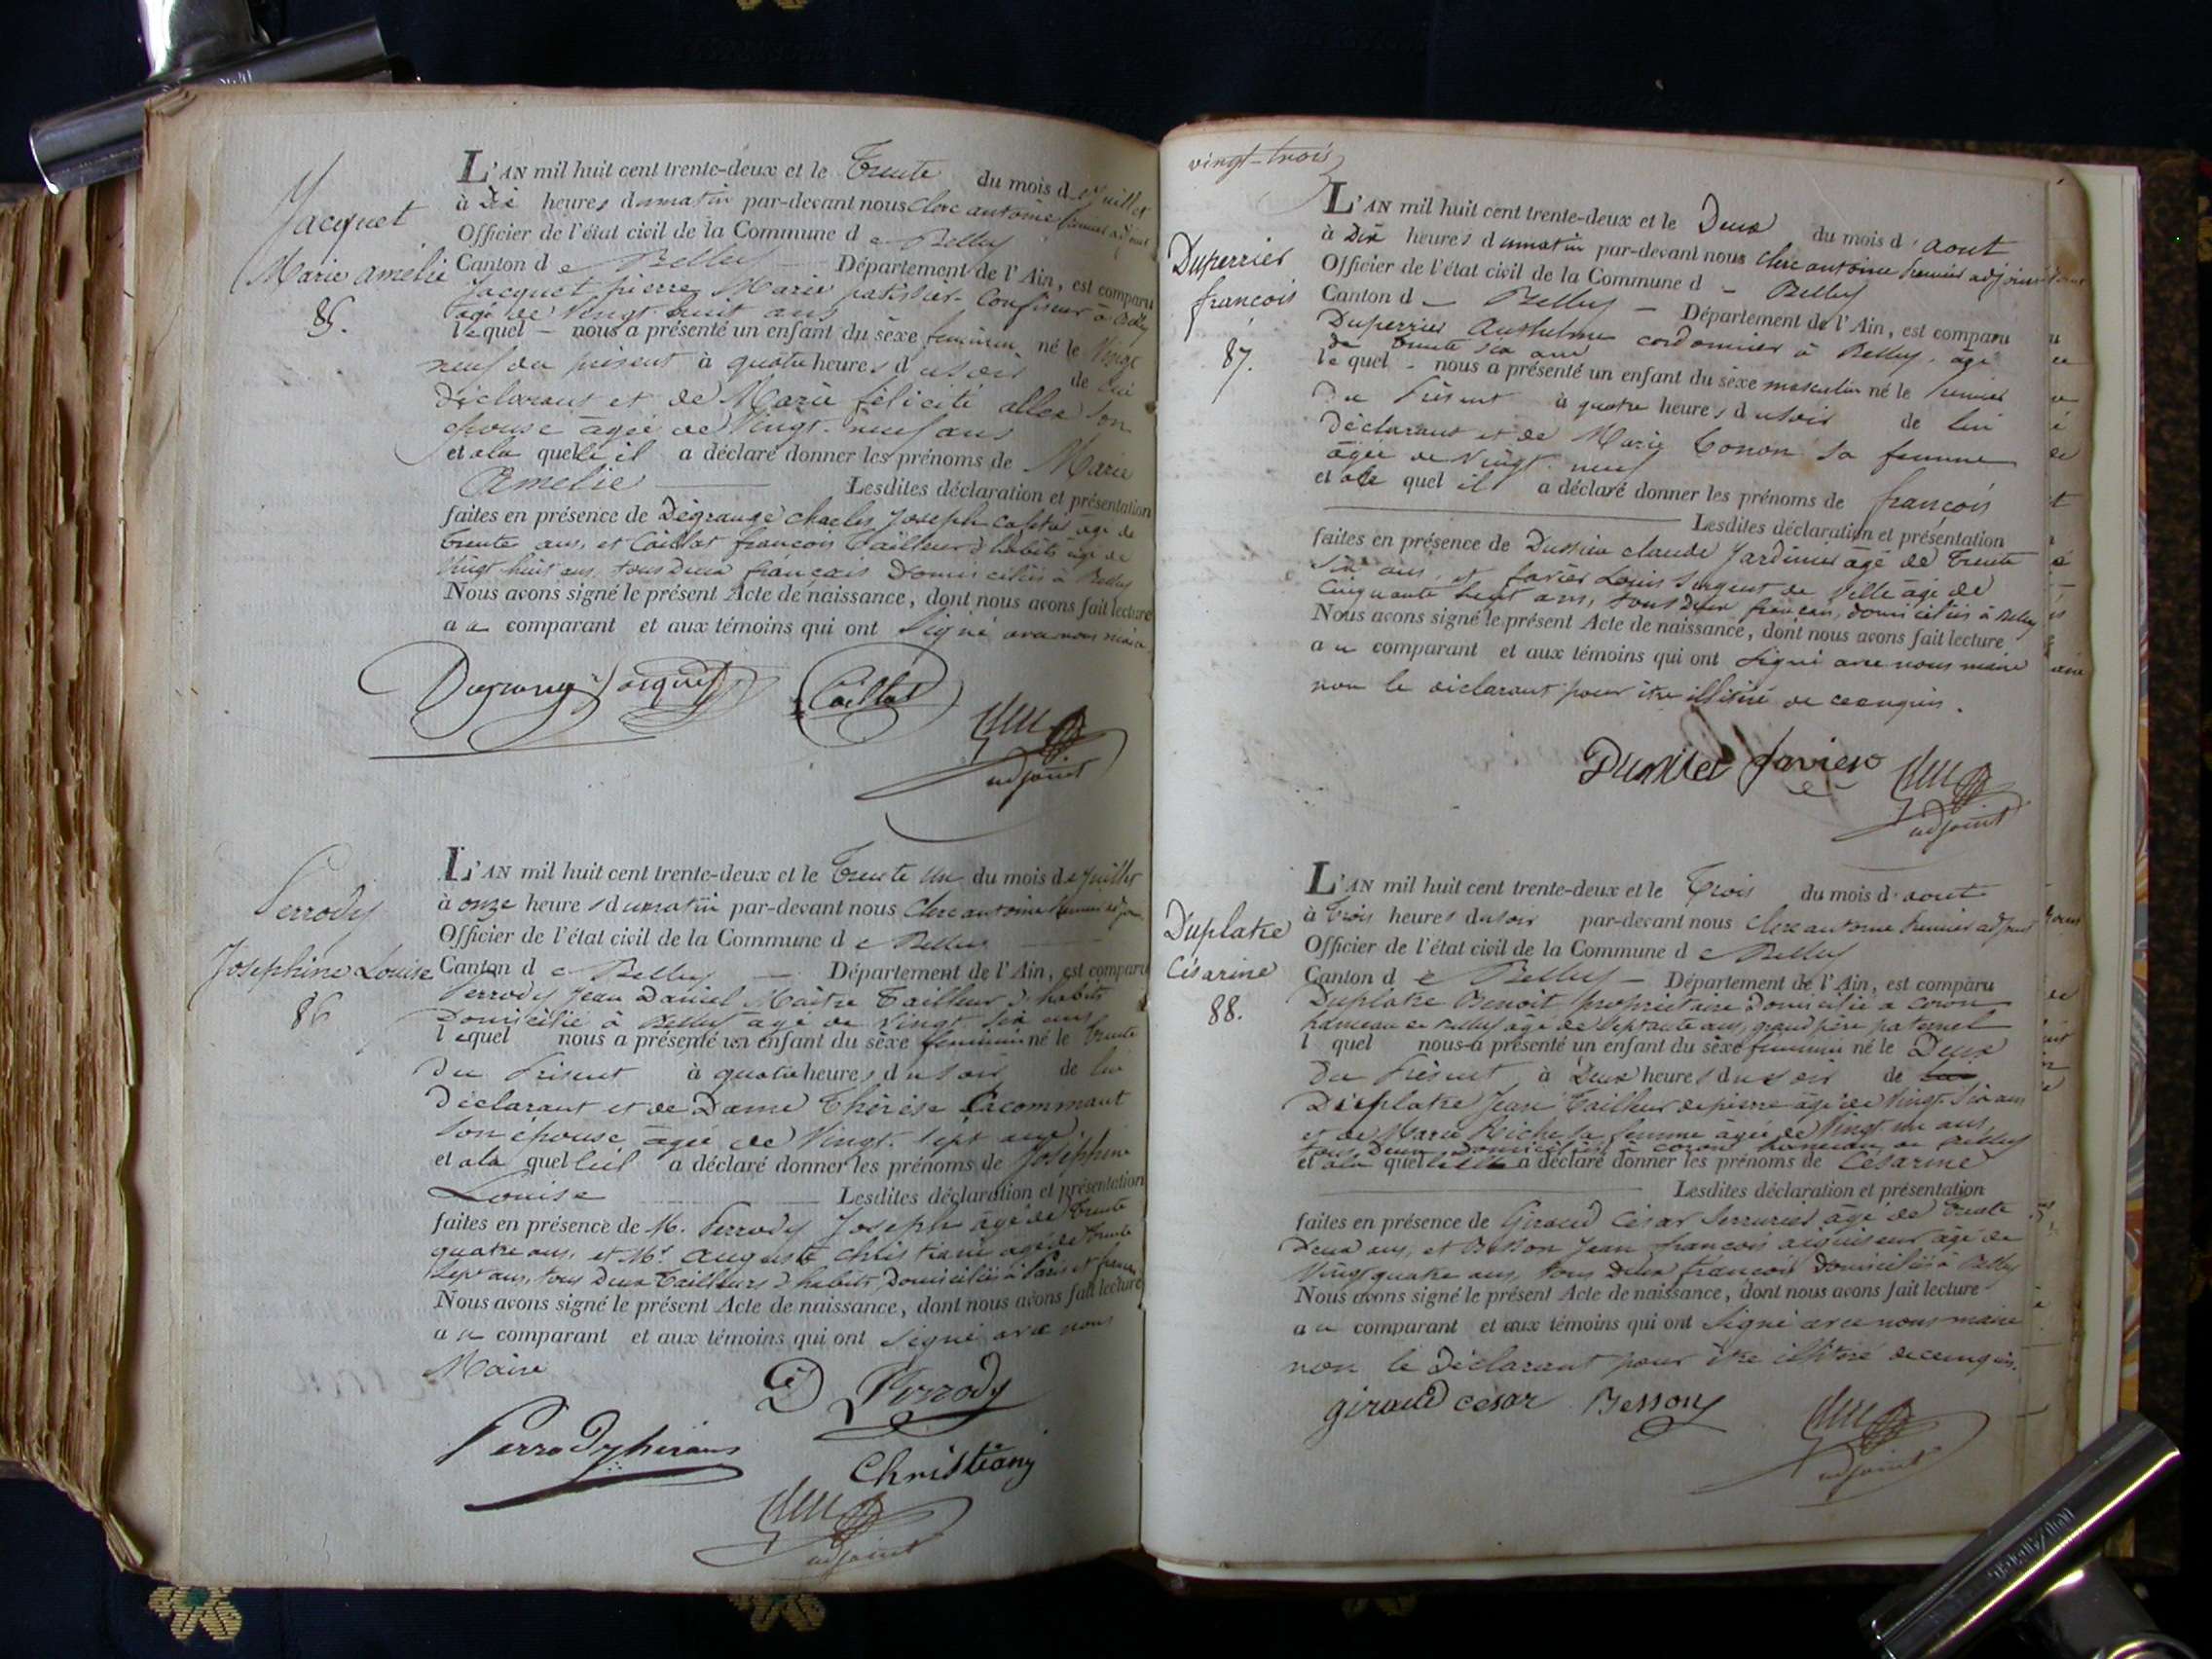 Jacquet
Marie amelie
85.
L'AN mil huit cent trente-deux et le Trente du mois de Juillet
à Dix heures du matin par-devant nous Clerc antoine premier adjoint
Officier de l'état civil de la Commune de Belley
Canton de Belley Département de l'Ain, est comparu
Jacquet pierre Marie patissier-Confiseur à Belley
agé de Vingt huit ans
lequel - nous a présenté un enfant du sèxe feminin né le Vingt
neuf du présent à quatre heures du soir de lui
déclarant et de Marie félicité allee son
épouse agée de Vingt-neuf ans
et à la quelle il a déclaré donner les prénoms de Marie
Amelie Lesdites déclaration et présentation
faites en présence de Dégrange Charles Joseph agé de
trente ans, et Caillat françois Tailleur d'habits agé de
Vingt huit ans, tous Deux français Domiciliés à Belley
Nous avons signé le présent Acte de naissance, dont nous avons fait lecture
au comparant et aux témoins qui ont signé avec nous maire.
Degrange Jacquet Caillat
adjoint
Perrody
Josephine Louise
86
L'AN mil huit cent trente-deux et le Trente un du mois de Juillet
à onze heures du matin par-devant nous Clerc antoine premier adjoint
Officier de l'état civil de la Commune de Belley
Canton de Belley Département de l'Ain, est comparu
Perrody Jean Daniel Maître Tailleur d'habits
Domicilié à Belley agé de Vingt six ans
lequel nous a présenté un enfant du sèxe feminin né le trente
Du Présent à quatre heures du soir de lui
Déclarant et de Dame Thérèse Lacommant
son épouse agée de Vingt-sept ans
et à la quelle il a déclaré donner les prénoms de Joséphine
Louise Lesdites déclaration et présentation
faites en présence de M. Perrody Joseph agé de trente
quatre ans, et Mr. Auguste Christiani agé de trente
sept ans, tous Deux Tailleurs d'habits, Domiciliés à Paris et français
Nous avons signé le présent Acte de naissance, dont nous avons fait lecture
au comparant et aux témoins qui ont signé avec nous
Maire
D Perrody
Perrody
Christiany
adjoint
vingt-trois
Duperrier
françois
87.
L'AN mil huit cent trente-deux et le Deux du mois d'aout
à Dix heures du matin par-devant nous Clerc antoine premier adjoint
Officier de l'état civil de la Commune de Belley
Canton de Belley - Département de l'Ain, est comparu
Duperrier Anthelme cordonnier à Belley, agé
de trente six ans
lequel - nous a présenté un enfant du sèxe masculin né le premier
Du Présent à quatre heures du soir de lui
Déclarant et de Marie Conon sa femme
âgée de Vingt-neuf
et a le quel il a déclaré donner les prénoms de françois
Lesdites déclaration et présentation
faites en présence de Dussieu claude Jardinier âgé de trente
six ans, et favier Louis Sergent de Ville âgé de
Cinquante sept ans, tous Deux français, domiciliés à Belley
Nous avons signé le présent Acte de naissance, dont nous avons fait lecture
au comparant et aux témoins qui ont signé avec nous maire
non le déclarant pour être illitéré de ce enquis.
favier
adjoint
Duplatre
Césarine
88.
L'AN mil huit cent trente-deux et le Trois du mois d'aout
à Trois heures du soir par-devant nous Clerc antoine premier adjoint
Officier de l'état civil de la Commune de Belley
Canton de Belley - Département de l'Ain, est comparu
Duplatre Benoit propriétaire Domicilié à coron
hameau de Belley âgé de Septante ans, grand père paternel
l quel nous a présenté un enfant du sèxe feminin né le Deux
Du Présent, à Deux heures du soir de
Duplatre Jean Tailleur de pierre âgé de Vingt-six ans
et de Marie Riche sa femme âgée de Vingt un ans,
tous Deux Domiciliés à coron hameau de Belley
et à la quelle il a déclaré donner les prénoms de Césarine
Lesdites déclaration et présentation
faites en présence de Giraud César Serrurier âgé de trente
Deux ans, et Besson Jean françois aiguiseur âgé de
Vingt quatre ans, tous Deux français Domiciliés à Belley
Nous avons signé le présent Acte de naissance, dont nous avons fait lecture
au comparant et aux témoins qui ont signé avec nous maire
non le Déclarant pour être illitéré de ce enquis.
giraud cesar Besson
adjoint